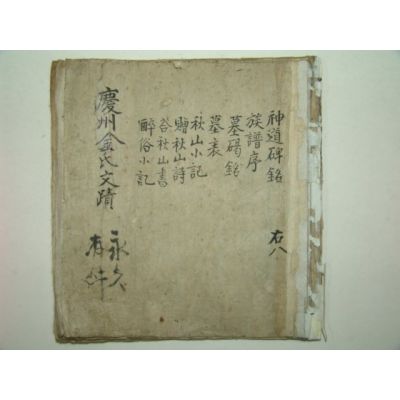 神道碑銘
右八
族譜序
墓碣銘
墓表
秋山小記
贈秋山詩
答秋山書
醉俗小記
慶州金氏文蹟
永久
有